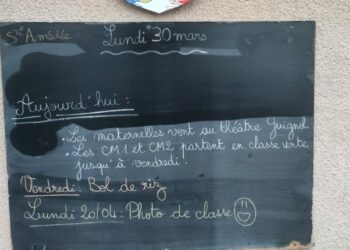 Ste Amédée
Lundi 30 mars
Aujourd'hui :
. Les maternelles vont au théâtre Guignol
. Les CM1 et CM2 partent en classe verte
jusqu'à vendredi !
Vendredi : Bol de riz
Lundi 20/04 : Photo de classe